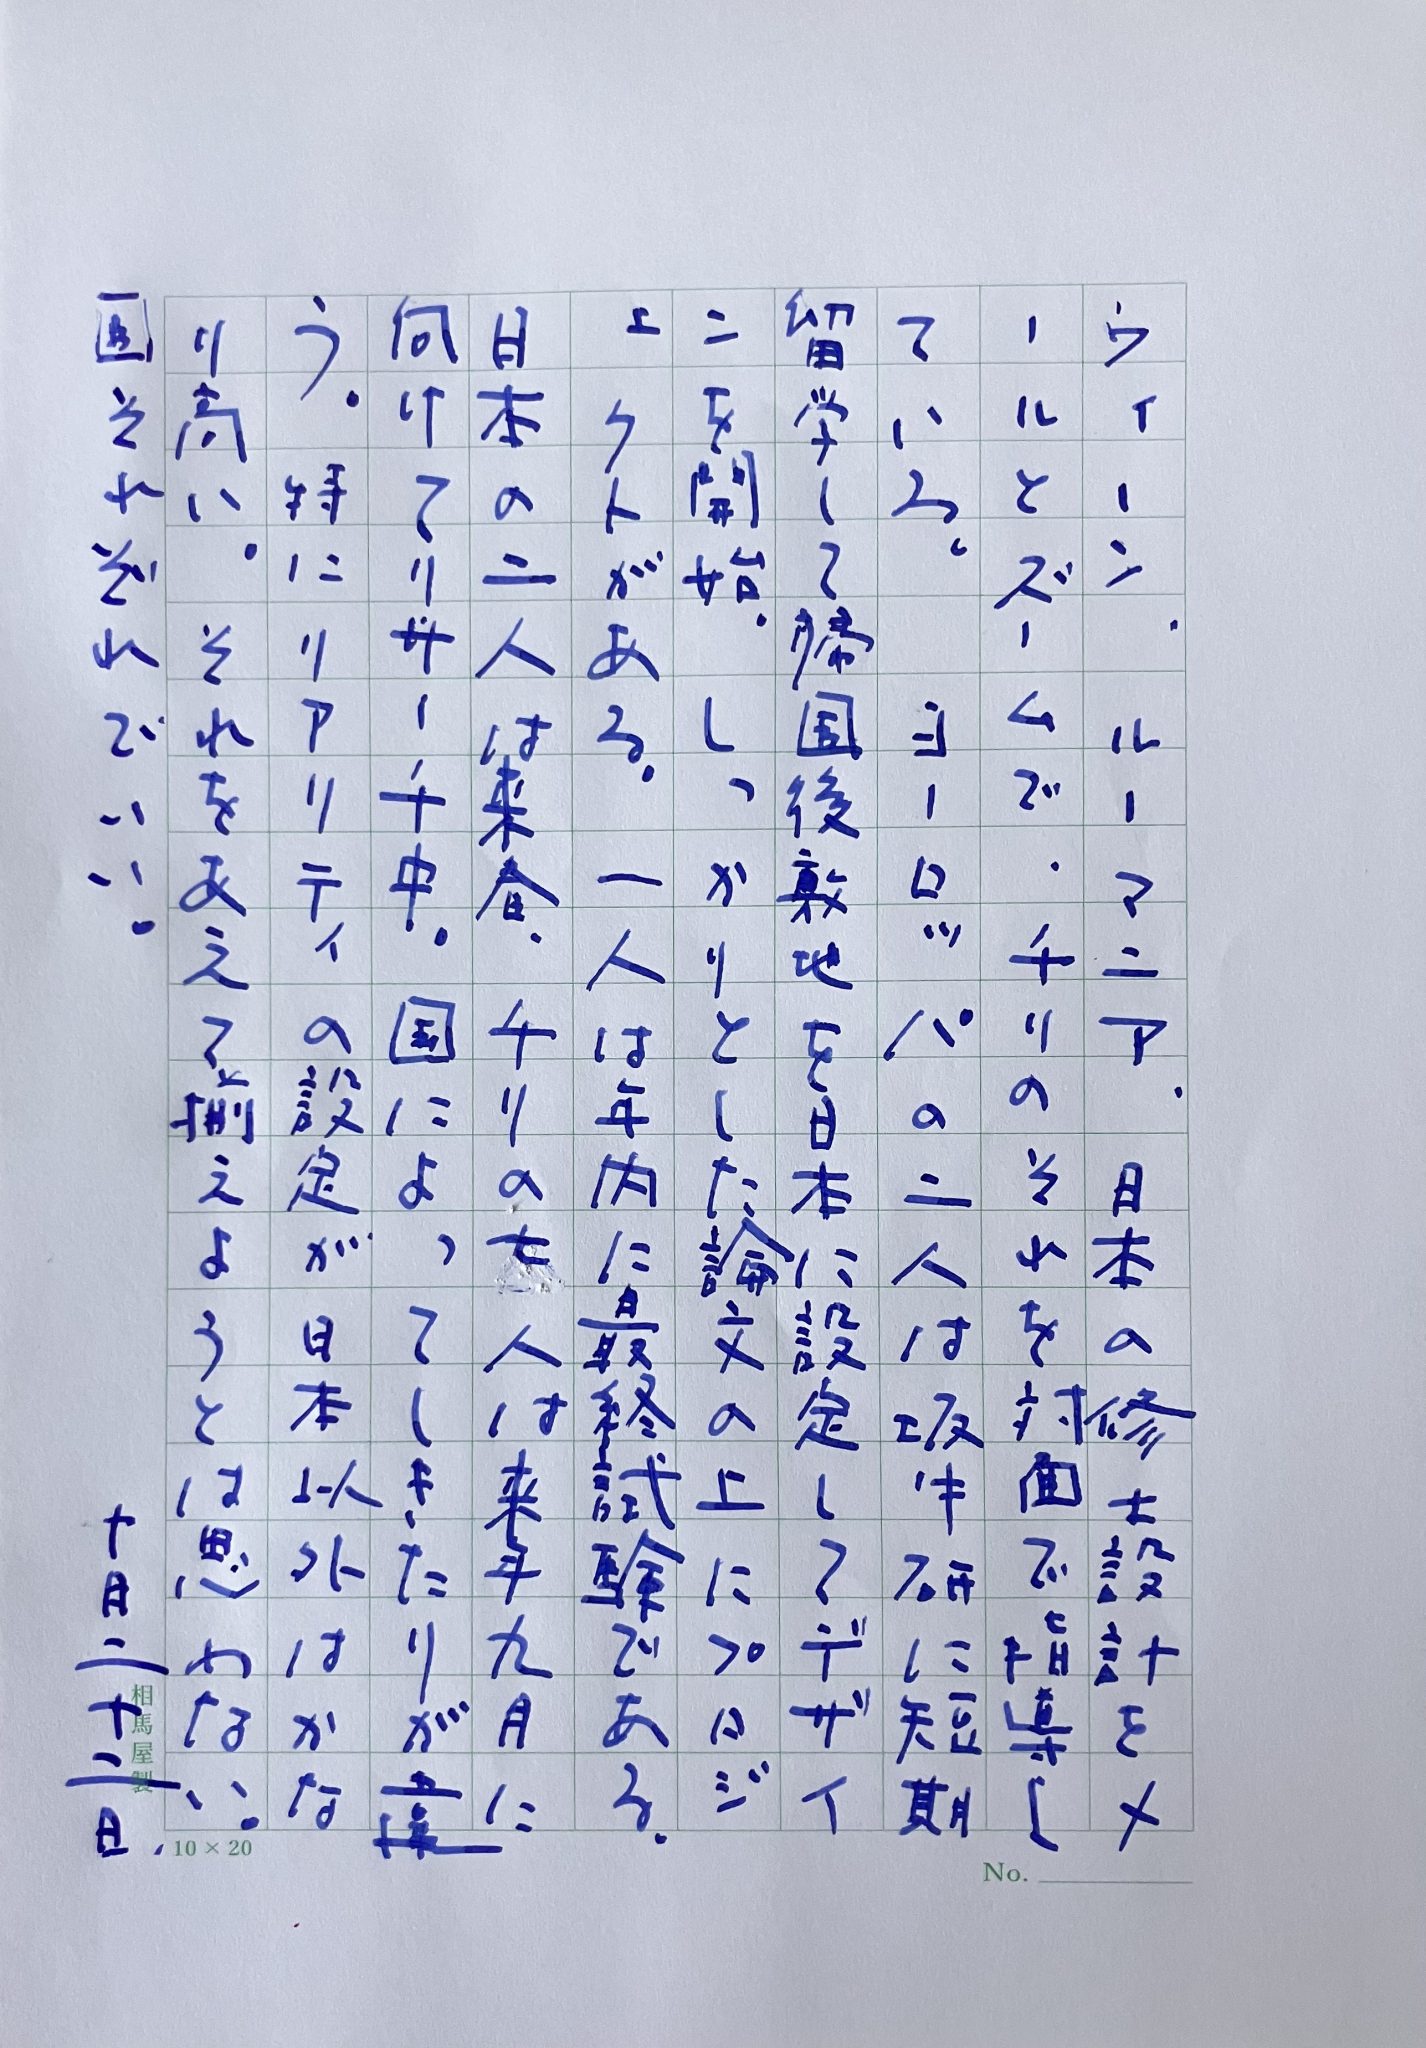 ウィーン、ルーマニア、日本の修士設計をメ
ールとズームで、チリのそれを対面で指導し
ている。ヨーロッパの二人は坂牛研に短期
留学して帰国後敷地を日本に設定してデザイ
ンを開始。しっかりとした論文の上にプロジ
ェクトがある。一人は年内に最終試験である。
日本の二人は来春、チリの 人は来年九月に
向けてリサーチ中。国によってしきたりが違
う。特にリアリティの設定が日本以外はかな
り高い。それをあえて揃えようとは思わない。
国それぞれでいい。
十月二十二日、
相馬屋製
10×20
No.